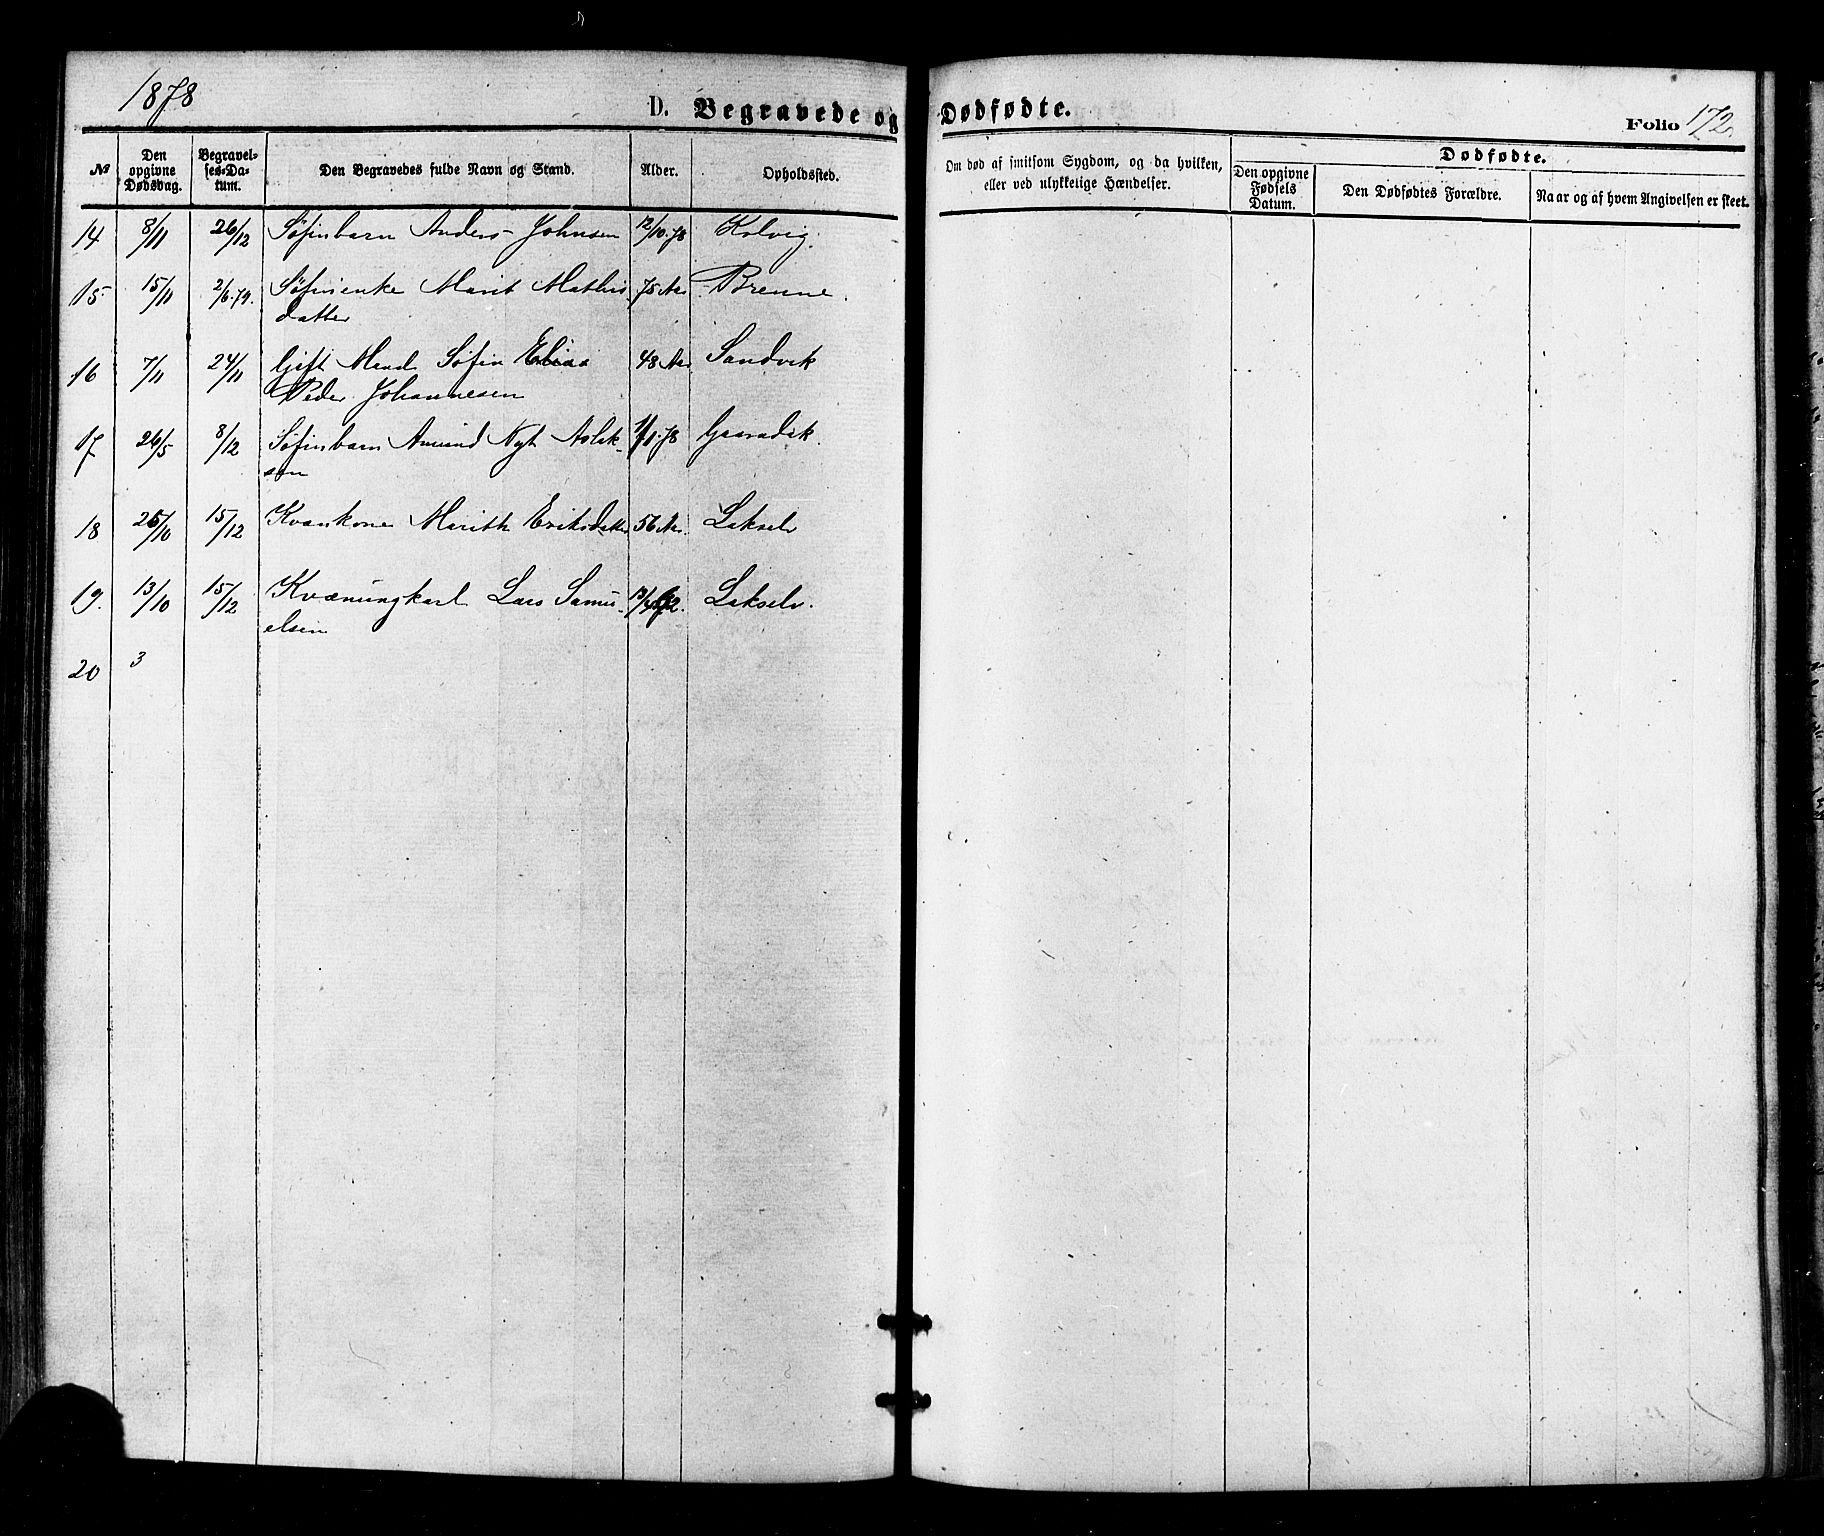 1878
D. Begravede og Dødfødte.
Folio 172.
No
Den opgivne Dødsdag.
Begravelses-Datum.
Den Begravedes fulde Navn og Stand.
Alder.
Opholdssted.
Om død af smitsom Sygdom, og da hvilken, eller ved ulykkelige Hændelser.
Dødfødte.
Den opgivne Fødsels Datum.
Den Dødfødtes Forældre.
Naar og af hvem Angivelsen er skeet.
14 8/11 26/12 Søfinbarn Anders Johnsen 12/10.78 Kolvig.
15 15/11 2/6.79. Søfinenke Marit Mathis 75 Aar Brenne.
datter
16 7/11 24/11 Gift Mand Søfin Elias 48 Aar Sandvik
Peder Johannesen
17 26/5 8/12 Søfinbarn Amund Nyt Aslak- 1/1.78
sen
18 25/10 15/12 Kvænkone Marith Eriksdatter 56 Aar. Lakselv
19. 13/10 15/12 Kvænungkarl Lars Samu- Lakselv.
elsen
20 3